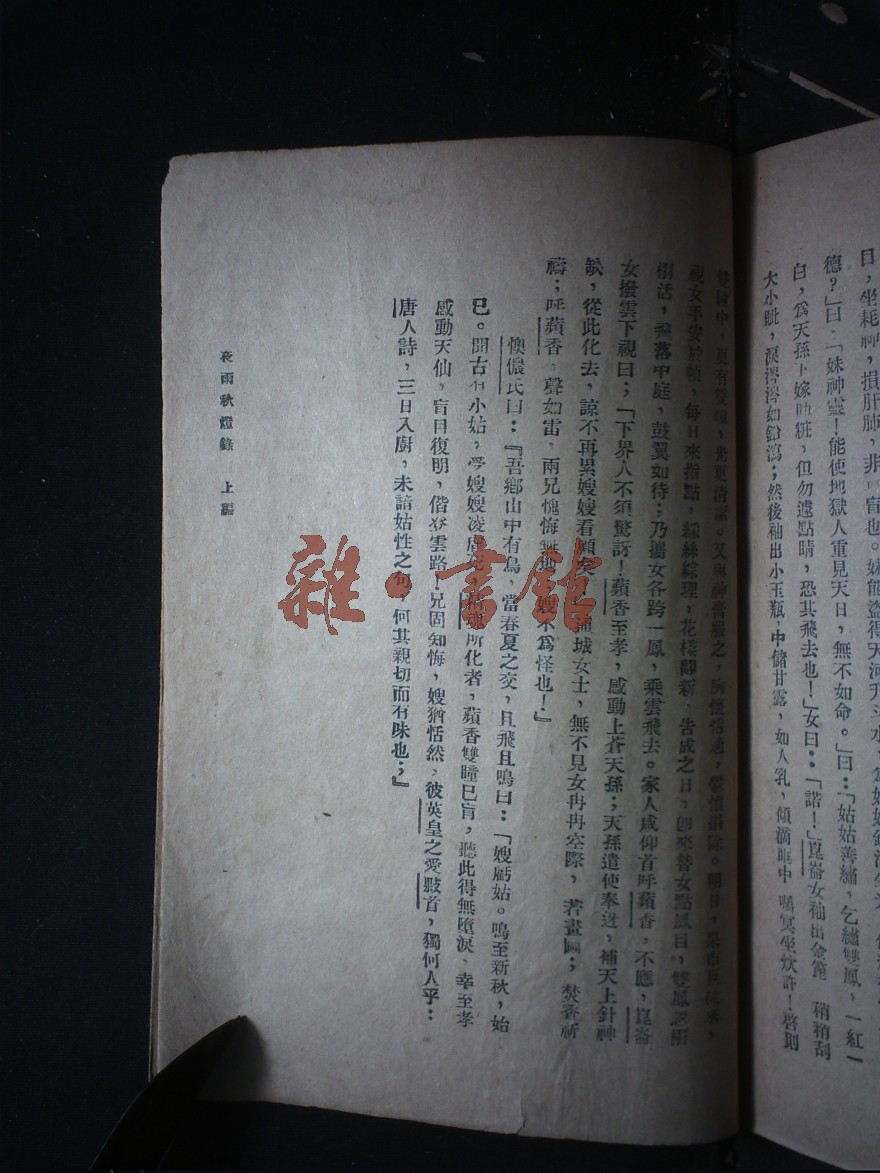 日，坐耗神，損肝肺，非眚也。妹能盜得天河升斗水，
德？」曰：「妹神靈！能使地獄人重見天日，無不如命。」曰：「姑姑善繡，乞繡雙鳳，一紅一
白，爲天孫下嫁時粧，但勿遽點睛，恐其飛去也！」女曰：「諾！」崑崙女袖出金篦　稍稍刮
大小眦，淚涔涔如鉛瀉；然後袖出小玉瓶，中儲甘露，如人乳，傾滴眶中　瞑冥坐炊許！啓則
雙睛中，更有雙瞳，光更清潔。又與神膏服之，胸懷恬適，
視女手安於幀，每日來指點，綵絲綜理，花樣翻新，告成之日，卽來替女點鳳目，雙鳳忽栩
栩活，飛落中庭，鼓翼如待：乃攜女各跨一鳳，乘雲飛去。家人咸仰首呼蘋香，不應，崑崙
女撥雲下視曰；「下界人不須驚訝！蘋香至孝，感動上蒼天孫；天孫遣使奉迓，補天上針神
缺，從此化去，諒不再累嫂嫂看顧矣！」滿城女士，無不見女冉冉空際，若畫圖；焚香祈
禱；呼蘋香，聲如雷，兩兄愧悔無地，嫂不爲怪也！』
懊儂氏曰：『吾鄉山中有鳥，當春夏之交，且飛且鳴曰：「嫂虧姑。鳴至新秋，始
已。聞古有小姑，受嫂嫂凌虐死，精魂所化者，蘋香雙瞳已盲，聽此得無墮淚，幸至孝
感動天仙，盲目復明，偕登雲路，兄固知悔，嫂猶恬然，彼英皇之愛敤首，獨何人乎：
唐人詩，三日入廚，未諳姑性之句，何其親切而有味也；』
夜雨秋燈錄　上編
雜·書館